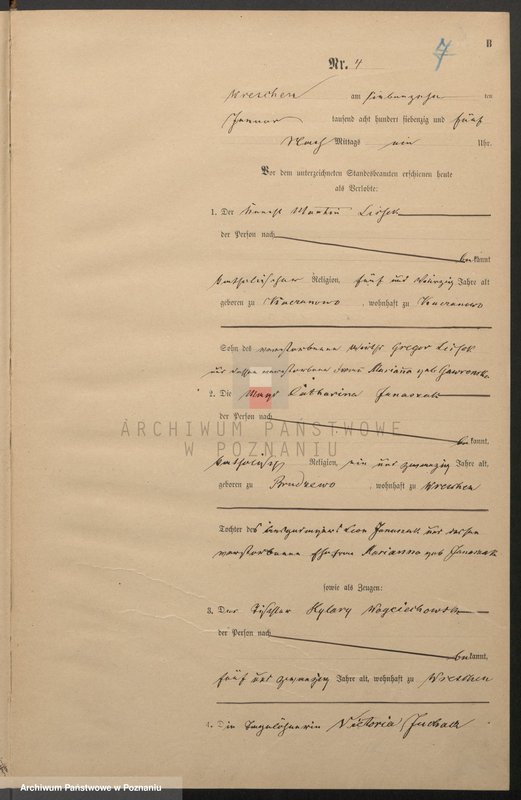 B
7
Nr. 4
Wreschen am siebenzehn ten
Januar tausend acht hundert siebenzig und fünf
Nach Mittags ein Uhr.
Vor dem unterzeichneten Standesbeamten erschienen heute
als Verlobte:
1. Der Knecht Martin
der Person nach
bekannt
katholischer Religion, fünf und Jahre alt
geboren zu , wohnhaft zu
Sohn des verstorbenen Wirths Gregor
und dessen verstorbene Frau Marianna geb
2. Die Magd Catharina
der Person nach
bekannt,
katholisch Religion, ein und zwanzig Jahre alt,
geboren zu Brudzewo , wohnhaft zu Wreschen
Tochter des Leon und dessen
verstorbene Ehefrau Marianna geb
sowie als Zeugen:
3. Der Tischler Hylary
der Person nach
bekannt,
fünf und zwanzig Jahre alt, wohnhaft zu Wreschen
4. Die Tagelöhnerin Victoria
ARCHIWUM PAŃSTWOWE
W POZNANIU
Archiwum Państwowe w Poznaniu